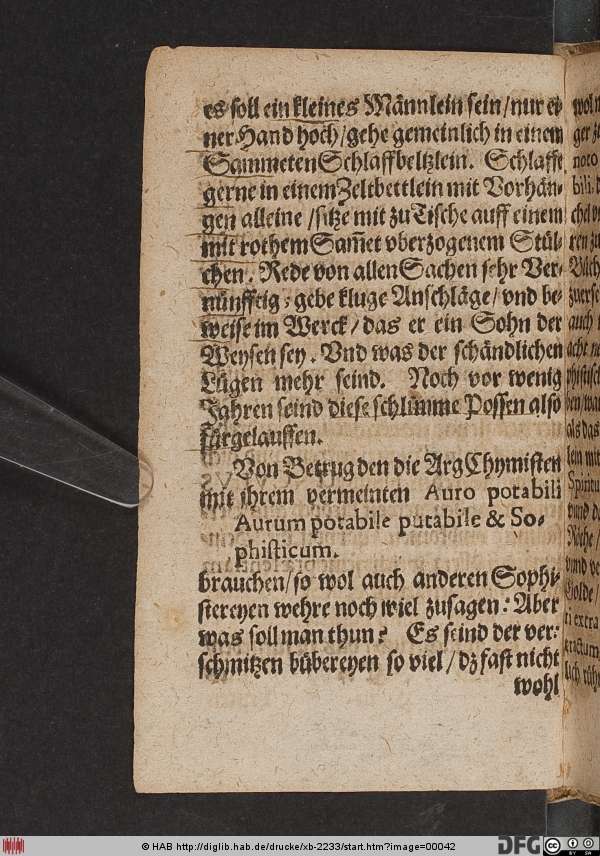 es soll ein kleines Männlein sein/nur ei-
ner Hand hoch/gehe gemeinlich in einem
Sammeten Schlaffbeltzlein. Schlaffe
gerne in einem Zeltbettlein mit Vorhän-
gen alleine/sitze mit zu Tische auff einem
mit rothem Sam̃et vberzogenem Stül-
chen. Rede von allen Sachen sehr Ver-
nünfftig: gebe kluge Anschläge/vnd be-
weise im Werck/das er ein Sohn der
Weysen sey. Vnd was der schändlichen
Lügen mehr seind. Noch vor wenig
Jahren seind diese schlimme Possen also
fürgelauffen.
Von Betrug den die ArgChymisten
mit ihrem vermeinten Auro potabili
Aurum potabile putabile & So-
phisticum.
brauchen/so wol auch anderen Sophi-
stereyen wehre noch wiel zusagen: Aber
was soll man thun? Es seind der ver-
schmitzen bübereyen so viel/dz fast nicht
wohl
© HAB http://diglib.hab.de/drucke/xb-2233/start.htm?image=00042
DFG
CC BY SA